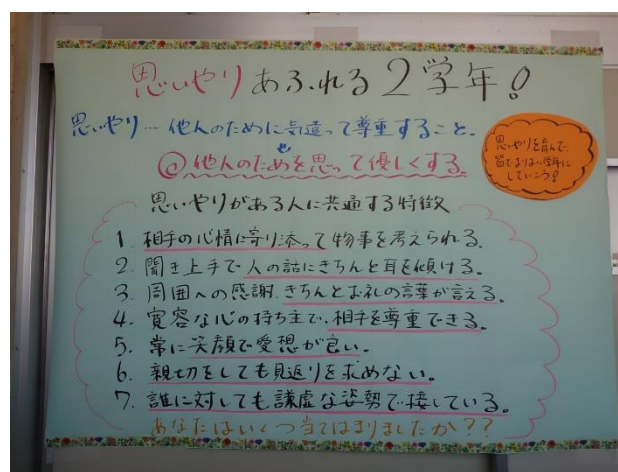 思いやりあふれる2学年!
思いやり…他人のために気遣って尊重すること。
@他人のためを思って優しくする。
思いやりを育んで、
皆でよりよい学年に
していこう!
思いやりがある人に共通する特徴
1. 相手の心情に寄り添って物事を考えられる。
2. 聞き上手で人の話にきちんと耳を傾ける。
3. 周囲への感謝、きちんとお礼の言葉が言える。
4. 寛容な心の持ち主で、相手を尊重できる。
5. 常に笑顔で愛想が良い。
6. 親切をしても見返りを求めない。
7. 誰に対しても謙虚な姿勢で接している。
あなたはいくつ当てはまりましたか??